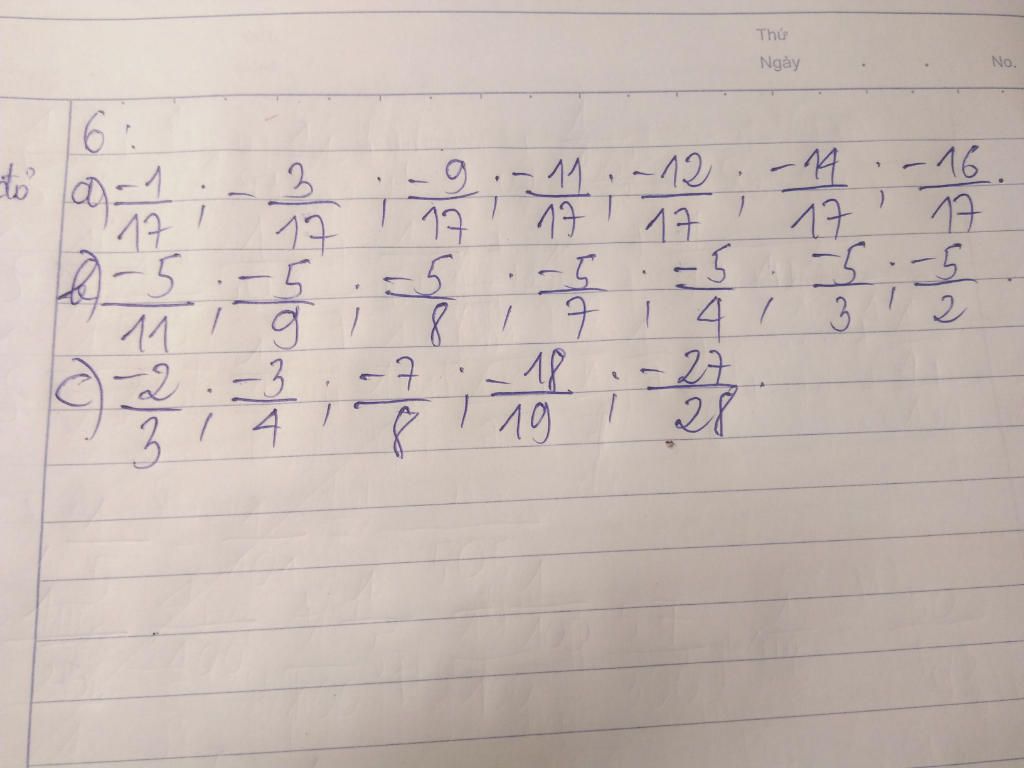 Thứ
Ngày . . No.
6:
đỏ a) -1/17 ; -3/17 ; -9/17 ; -11/17 ; -12/17 ; -14/17 ; -16/17.
b) -5/11 ; -5/9 ; -5/8 ; -5/7 ; -5/4 ; -5/3 ; -5/2.
c) -2/3 ; -3/4 ; -7/8 ; -18/19 ; -27/28.